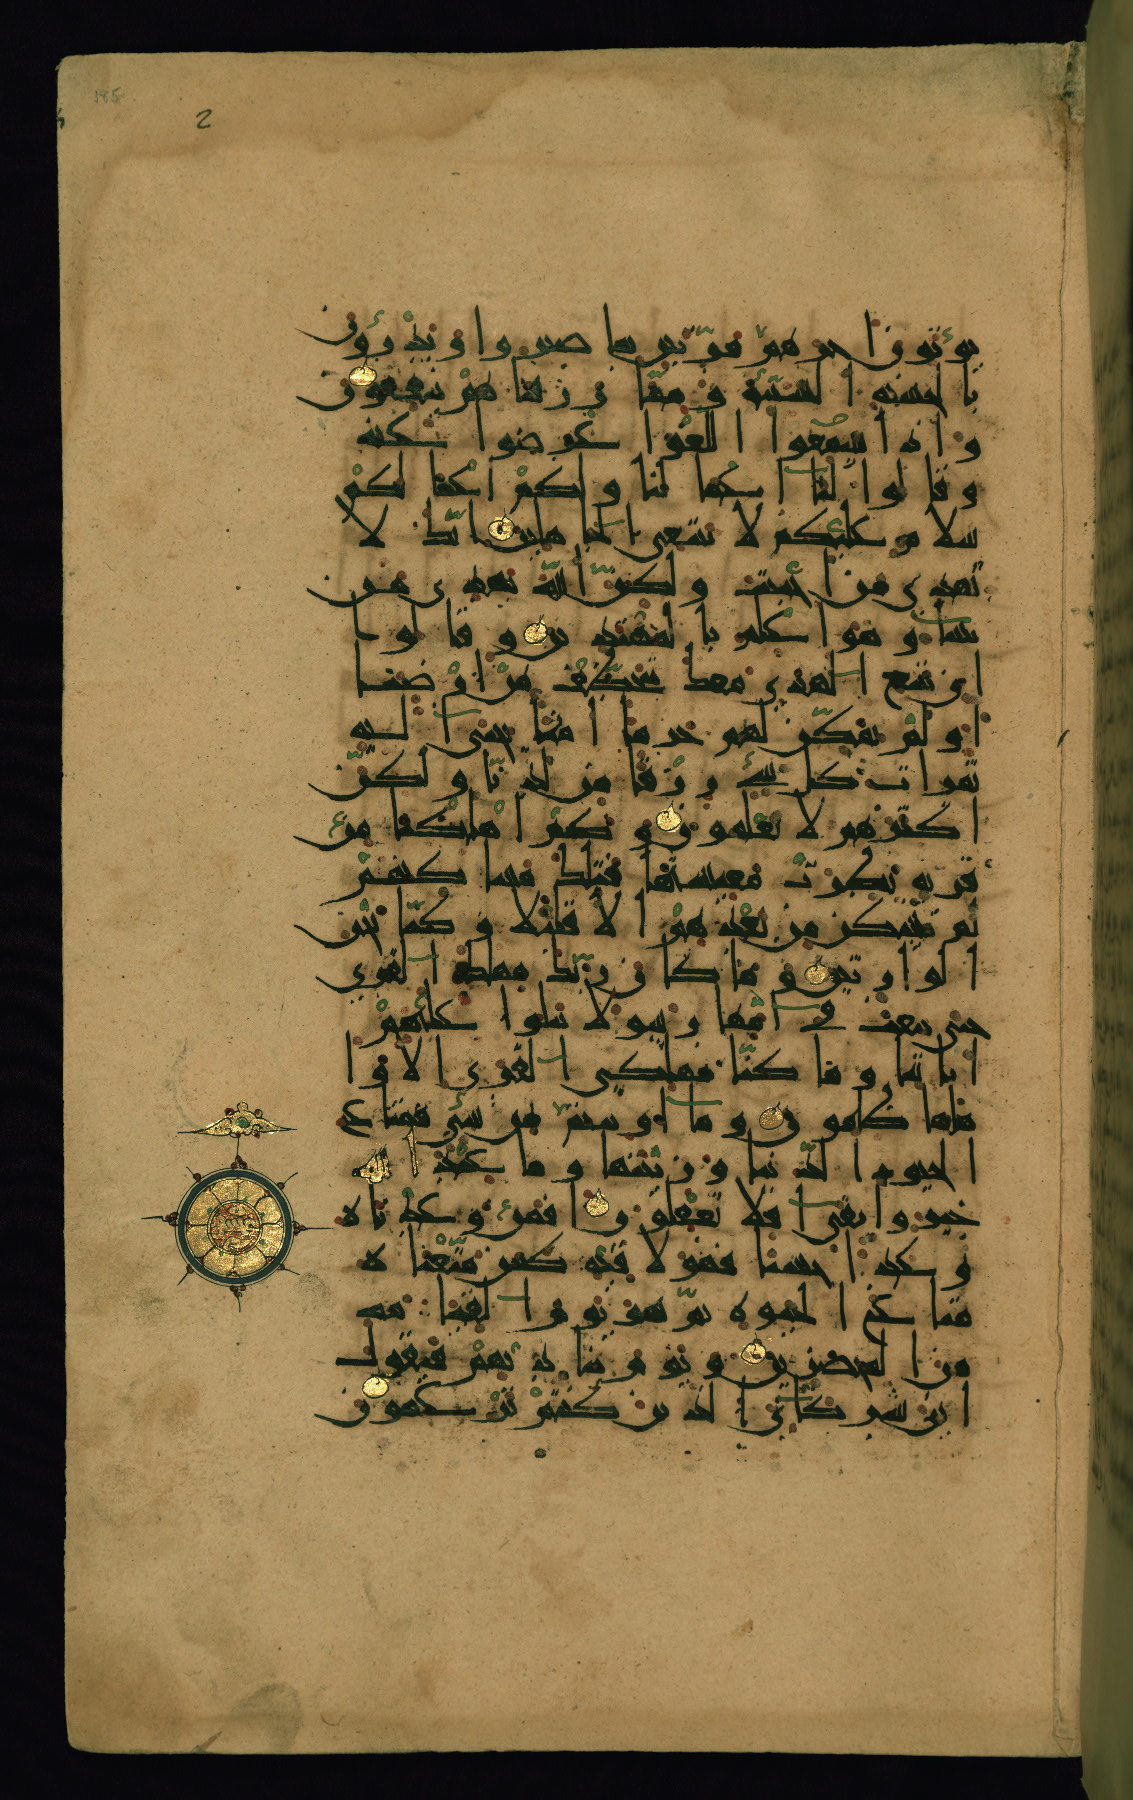 يؤتون اجرهم مرتين بما صبروا ويدرؤن
بالحسنة السيئة ومما رزقناهم ينفقون
واذا سمعوا اللغو اعرضوا عنه
وقالوا لنا اعمالنا ولكم اعمالكم
سلام عليكم لا نبتغي الجاهلين انك لا
تهدي من احببت ولكن الله يهدي من
يشاء وهو اعلم بالمهتدين وقالوا
ان نتبع الهدى معك نتخطف من ارضنا
اولم نمكن لهم حرما امنا يجبى اليه
ثمرات كل شيء رزقا من لدنا ولكن
اكثرهم لا يعلمون وكم اهلكنا من
قرية بطرت معيشتها فتلك مساكنهم
لم تسكن من بعدهم الا قليلا وكنا نحن
الوارثين وما كان ربك مهلك القرى
حتى يبعث في امها رسولا يتلوا عليهم
اياتنا وما كنا مهلكي القرى الا وا
هلها ظالمون وما اوتيتم من شيء فمتاع
الحيوة الدنيا وزينتها وما عند الله
خير وابقى افلا تعقلون افمن وعدناه
وعدا حسنا فهو لاقيه كمن متعناه
متاع الحيوة ثم هو يوم القيمة
من المحضرين ويوم يناديهم فيقول
اين شركائي الذين كنتم تزعمون